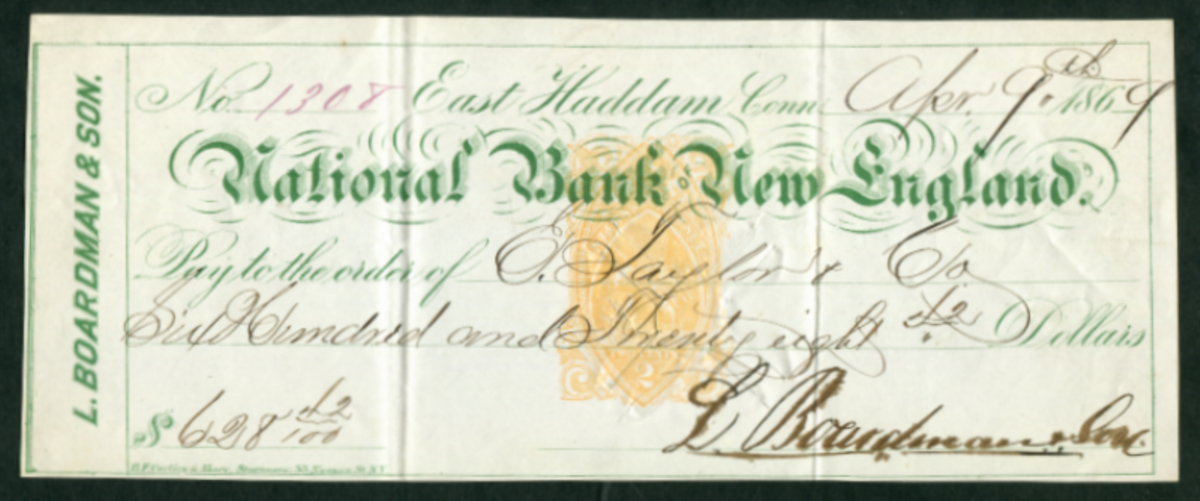 L. BOARDMAN & SON.
No. 1308 East Haddam Conn. Apr. 9th 1869
National Bank of New England.
Pay to the order of E. Taylor & Co
Six Hundred and Twenty eight 42 Dollars
$ 628 42/100
L Boardman & Son